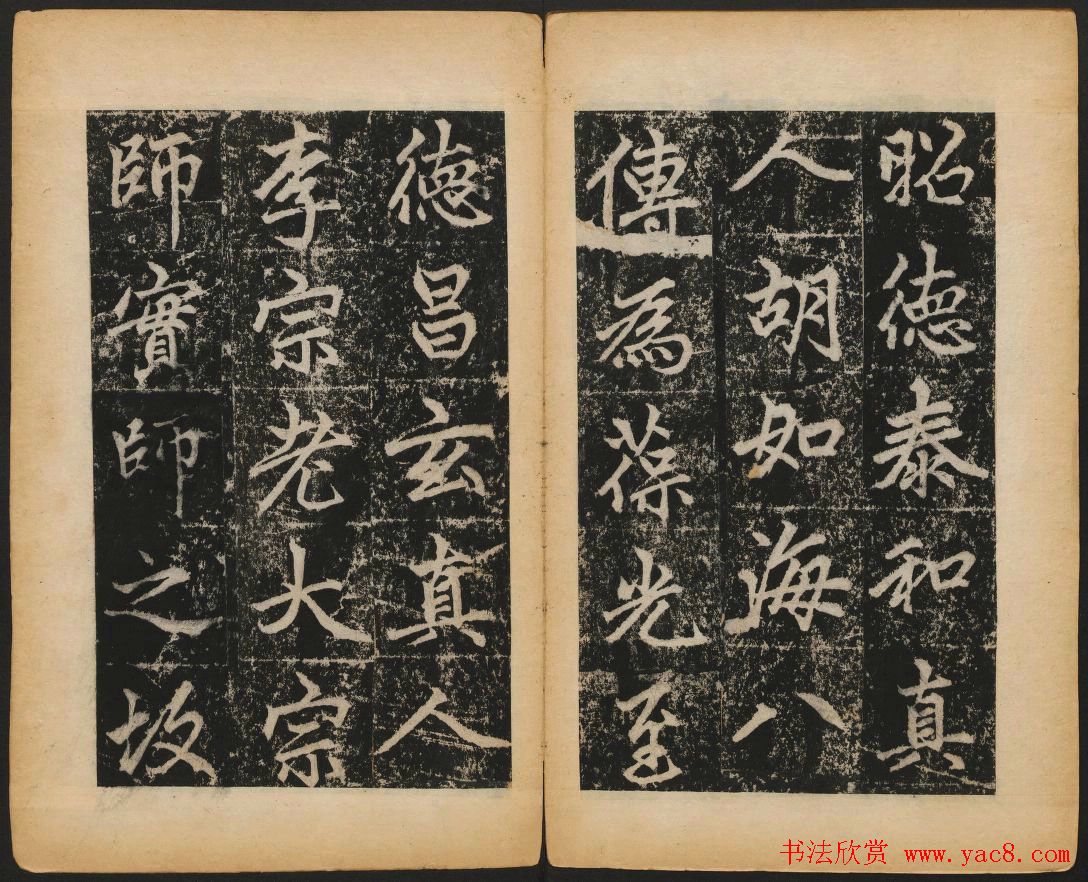 昭德泰和真
人胡如海八
傳爲葆光至
德昌玄真人
李宗老大宗
師實師之故
书法欣赏 www.yac8.com